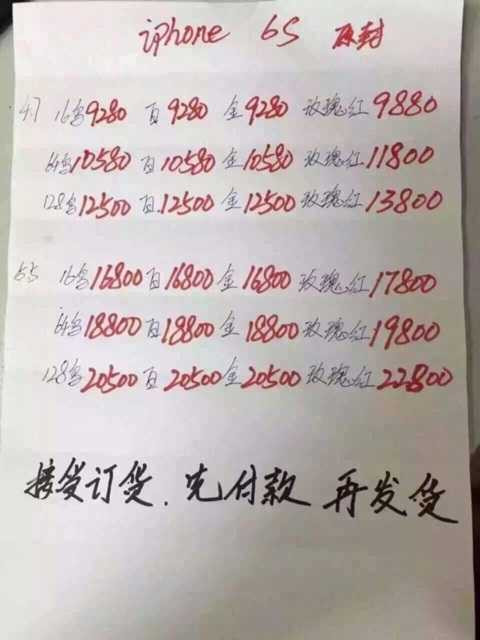 iphone 6S 原封
4.7 16g 9280 白 9280 金 9280 玫瑰红 9880
64g 10580 白 10580 金 10580 玫瑰红 11800
128g 12500 白 12500 金 12500 玫瑰红 13800
5.5 16g 16800 白 16800 金 16800 玫瑰红 17800
64g 18800 白 18800 金 18800 玫瑰红 19800
128g 20500 白 20500 金 20500 玫瑰红 22800
接受订货. 先付款 再发货